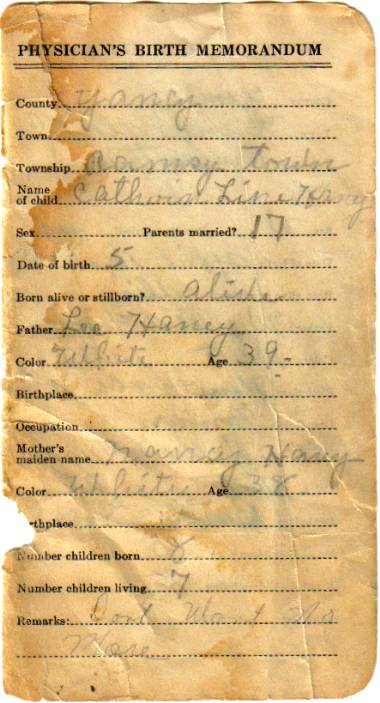 PHYSICIAN'S BIRTH MEMORANDUM
County Yancy
Town
Township Ramsy town
Name of child Cathrin Line Haney
Sex Parents married? 17
Date of birth 5
Born alive or stillborn? alive
Father Lee Haney
Color White Age 39
Birthplace
Occupation
Mother's maiden name Nancy Haney
Color White Age 38
rthplace
Number children born 8
Number children living 7
Remarks: Dont Want No
More